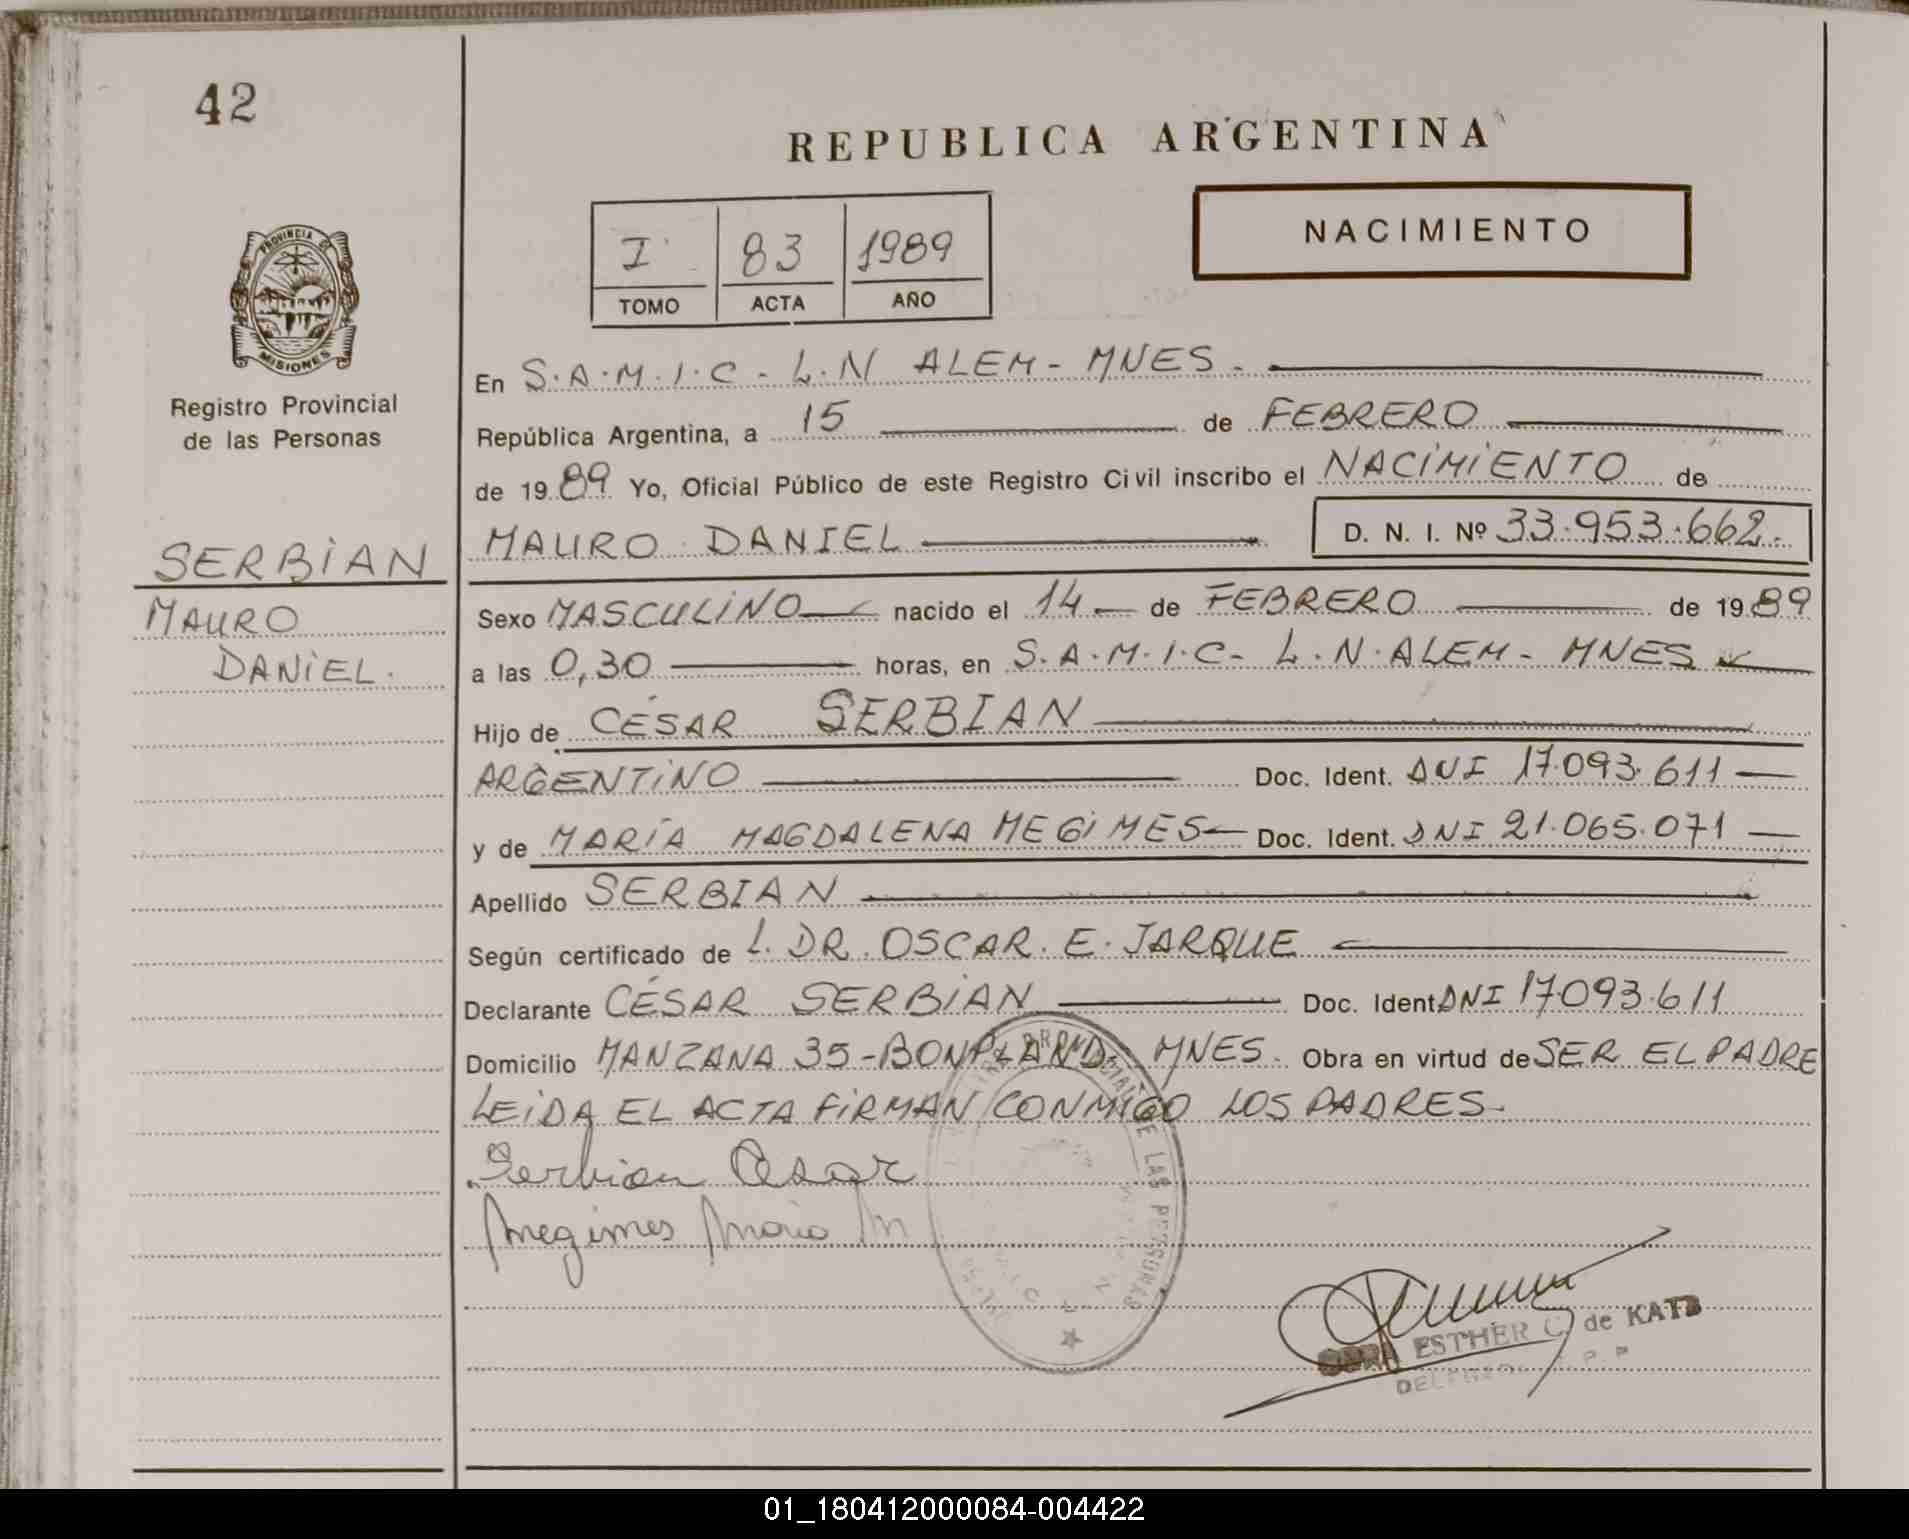 42
REPUBLICA ARGENTINA
NACIMIENTO
I 83 1989
TOMO ACTA AÑO
PROVINCIA DE
MISIONES
Registro Provincial
de las Personas
SERBIAN
MAURO
DANIEL.
En S.A.M.I.C - L.N ALEM - MNES.
República Argentina, a 15 de FEBRERO
de 1989 Yo, Oficial Público de este Registro Civil inscribo el NACIMIENTO de
MAURO DANIEL D. N. I. Nº 33.953.662.
Sexo MASCULINO nacido el 14 de FEBRERO de 1989
a las 0,30 horas, en S.A.M.I.C- L.N.ALEM - MNES
Hijo de CÉSAR SERBIAN
ARGENTINO Doc. Ident. DNI 17.093.611
y de MARÍA MAGDALENA MEGIMES Doc. Ident. DNI 21.065.071
Apellido SERBIAN
Según certificado de L. DR. OSCAR. E. JARQUE
Declarante CÉSAR SERBIAN Doc. Ident DNI 17093.611
Domicilio MANZANA 35-BONPLAND- MNES. Obra en virtud de SER EL PADRE
LEIDA EL ACTA FIRMAN CONMIGO LOS PADRES.
Serbian Cesar
Megimes Maria M
PROVINCIAL DE LAS PERSONAS
ESTHER C. de KATB
01_180412000084-004422